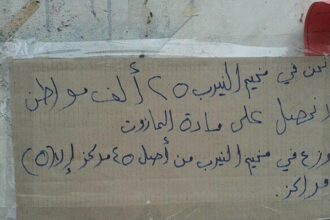 نحن في مخيم النيرب ٢٥ ألف مواطن
لا نحصل على مادة المازوت
وزع في مخيم النيرب من أصل ٤٥ مركز إلا (٥)
مراكز.